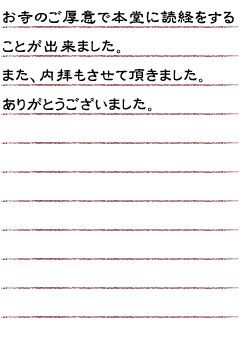 お寺のご厚意で本堂に読経をする
ことが出来ました。
また、内拝もさせて頂きました。
ありがとうございました。